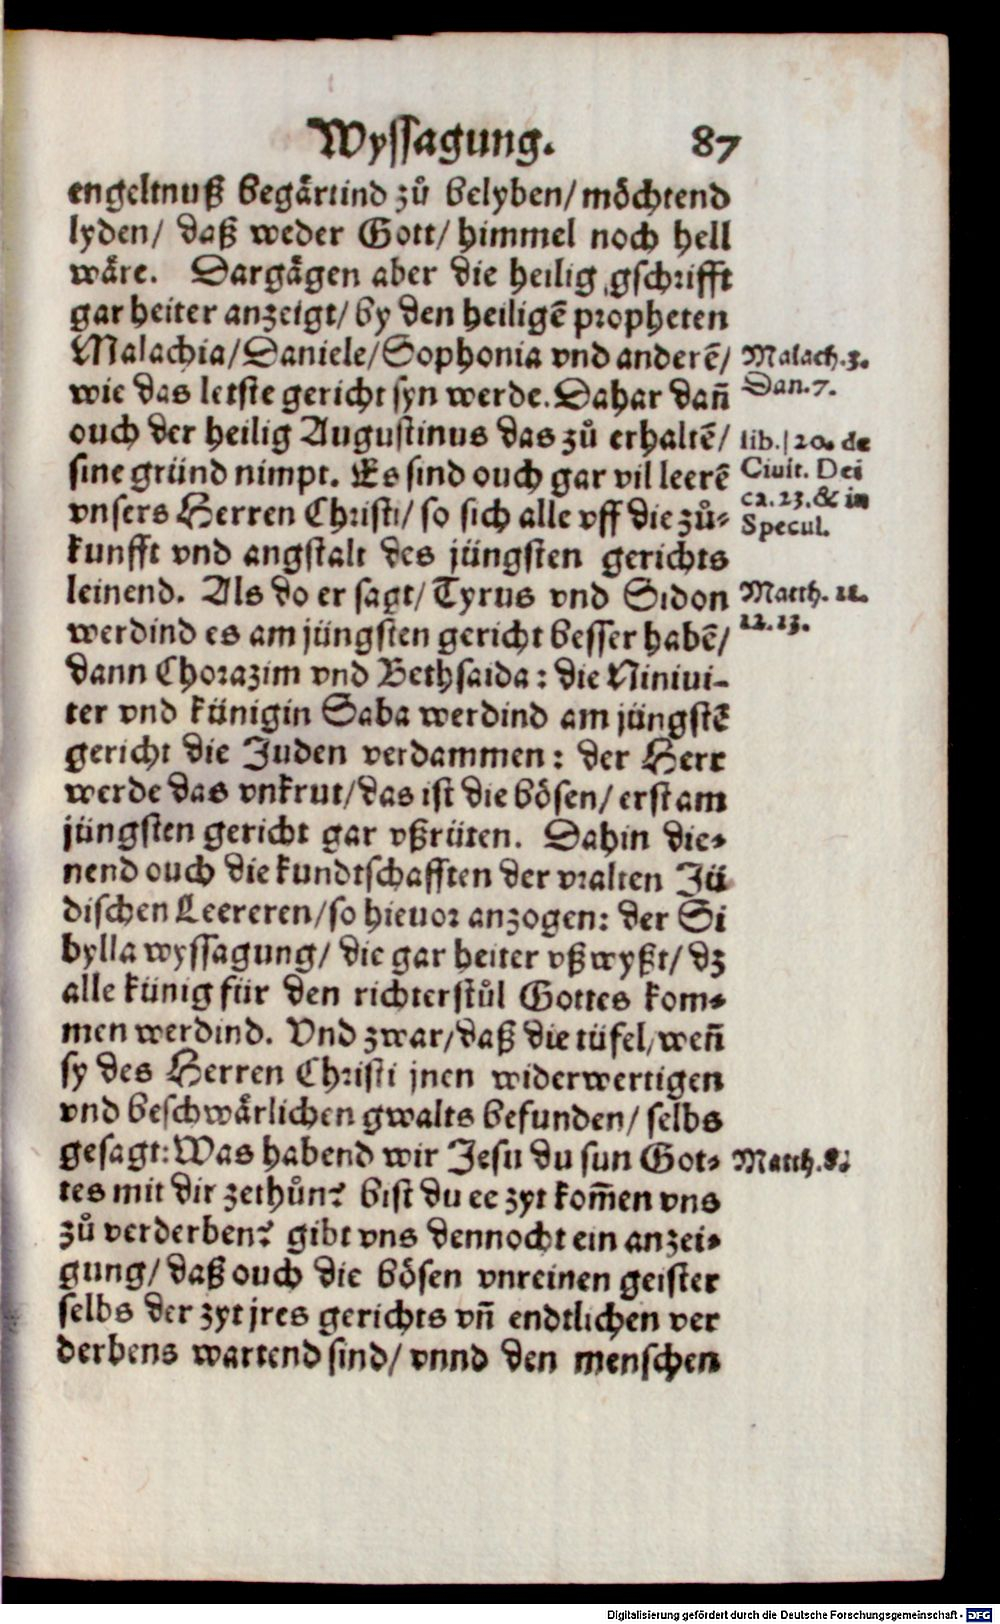 Wyssagung. 87
engeltnuß begärtind zů belyben/ möchtend
lyden/ daß weder Gott/ himmel noch hell
wäre. Dargägen aber die heilig gschrifft
gar heiter anzeigt/ by den heiligẽ propheten
Malachia/ Daniele/ Sophonia vnd anderẽ/
wie das letste gericht syn werde. Dahar dañ
ouch der heilig Augustinus das zů erhaltẽ/
sine gründ nimpt. Es sind ouch gar vil leerẽ
vnsers Herren Christi/ so sich alle vff die zů-
kunfft vnd angstalt des jüngsten gerichts
leinend. Als do er sagt/ Tyrus vnd Sidon
werdind es am jüngsten gericht besser habẽ/
dann Chorazim vnd Bethsaida: die Niniui-
ter vnd künigin Saba werdind am jüngstẽ
gericht die Juden verdammen: der Herr
werde das vnkrut/ das ist die bösen/ erst am
jüngsten gericht gar vßrüten. Dahin die-
nend ouch die kundtschafften der vralten Jü
dischen Leereren/ so hieuor anzogen: der Si
bylla wyssagung/ die gar heiter vßwyßt/ dz
alle künig für den richterstůl Gottes kom-
men werdind. Vnd zwar/ daß die tüfel/ weñ
sy des Herren Christi jnen widerwertigen
vnd beschwärlichen gwalts befunden/ selbs
gesagt: Was habend wir Jesu du sun Got-
tes mit dir zethůn? bist du ee zyt kom̃en vns
zů verderben? gibt vns dennocht ein anzei-
gung/ daß ouch die bösen vnreinen geister
selbs der zyt jres gerichts vñ endtlichen ver
derbens wartend sind/ vnnd den menschen
Malach.3.
Dan.7.
lib. 20. de
Ciuit. Dei
ca. 23. & in
Specul.
Matth. 11.
12.13.
Matth.8.
Digitalisierung gefördert durch die Deutsche Forschungsgemeinschaft - DFG